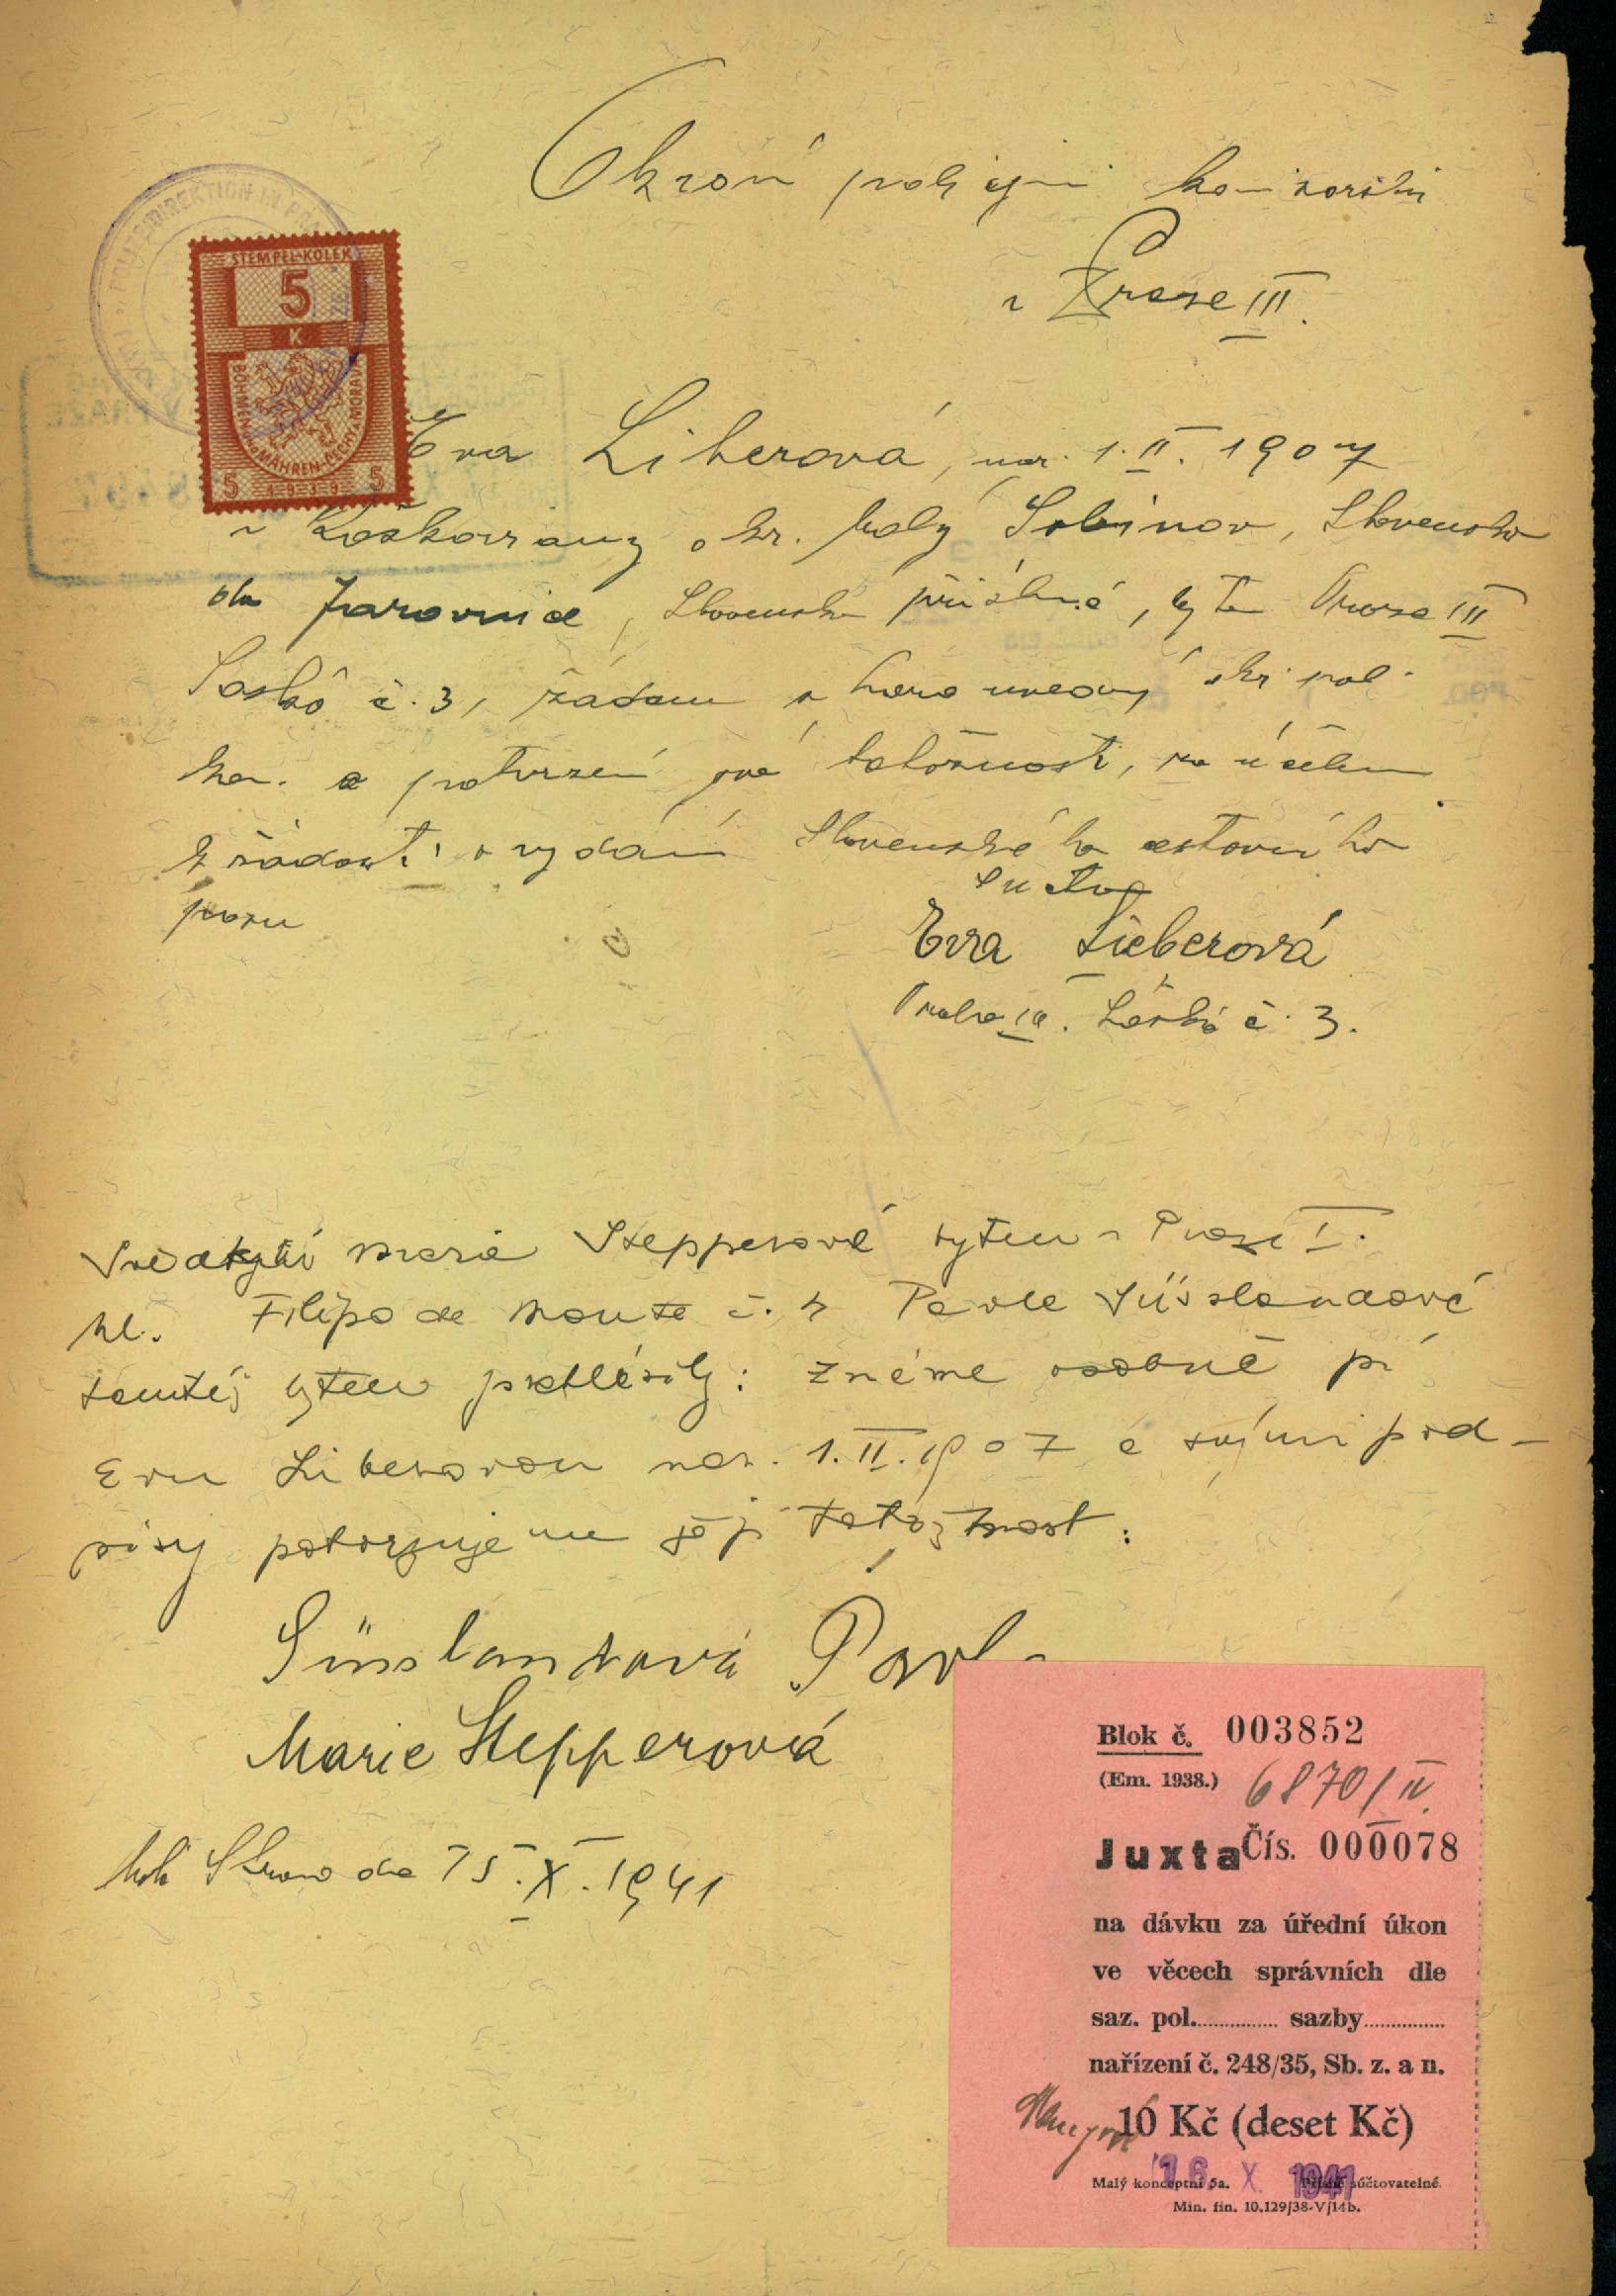 Okresní policejní komisařství
v Praze III.
STEMPEL-KOLEK
5
K
BÖHMEN UND MÄHREN-ČECHY A MORAVA
5 1939 5
POLIZEIDIREKTION IN PRAG
Eva Liberová, nar. 1.II.1907
v okr. Malý Sabinov, Slovensko
do Jarovnice, Slovensko příslušná, bytem Praze III
Saská č. 3, žádám o pol.
kom. o potvrzení své totožnosti, za účelem
k žádosti o vydání Slovenského cestovního
pasu
S úctou
Eva Lieberová
Praha III. Saská č. 3.
Svědkyně Marie Stepperová bytem v Praze I.
Filipa de Monte č. 4 Pavla Süsslandová
tamtéž bytem prohlásily: Známe osobně pí
Evu Liberovou nar. 1.II.1907 a svými pod-
pisy potvrzujeme její totožnost:
Süsslandová Pavla
Marie Stepperová
Malá Strana dne 15.X.1941
Blok č. 003852
(Em. 1938.) 6870/II
Juxta Čís. 000078
na dávku za úřední úkon
ve věcech správních dle
saz. pol. .............. sazby ..............
nařízení č. 248/35, Sb. z. a n.
10 Kč (deset Kč)
16. X. 1941
Malý konceptní 5a. Přísně súčtovatelné.
Min. fin. 10.129/38-V/14b.